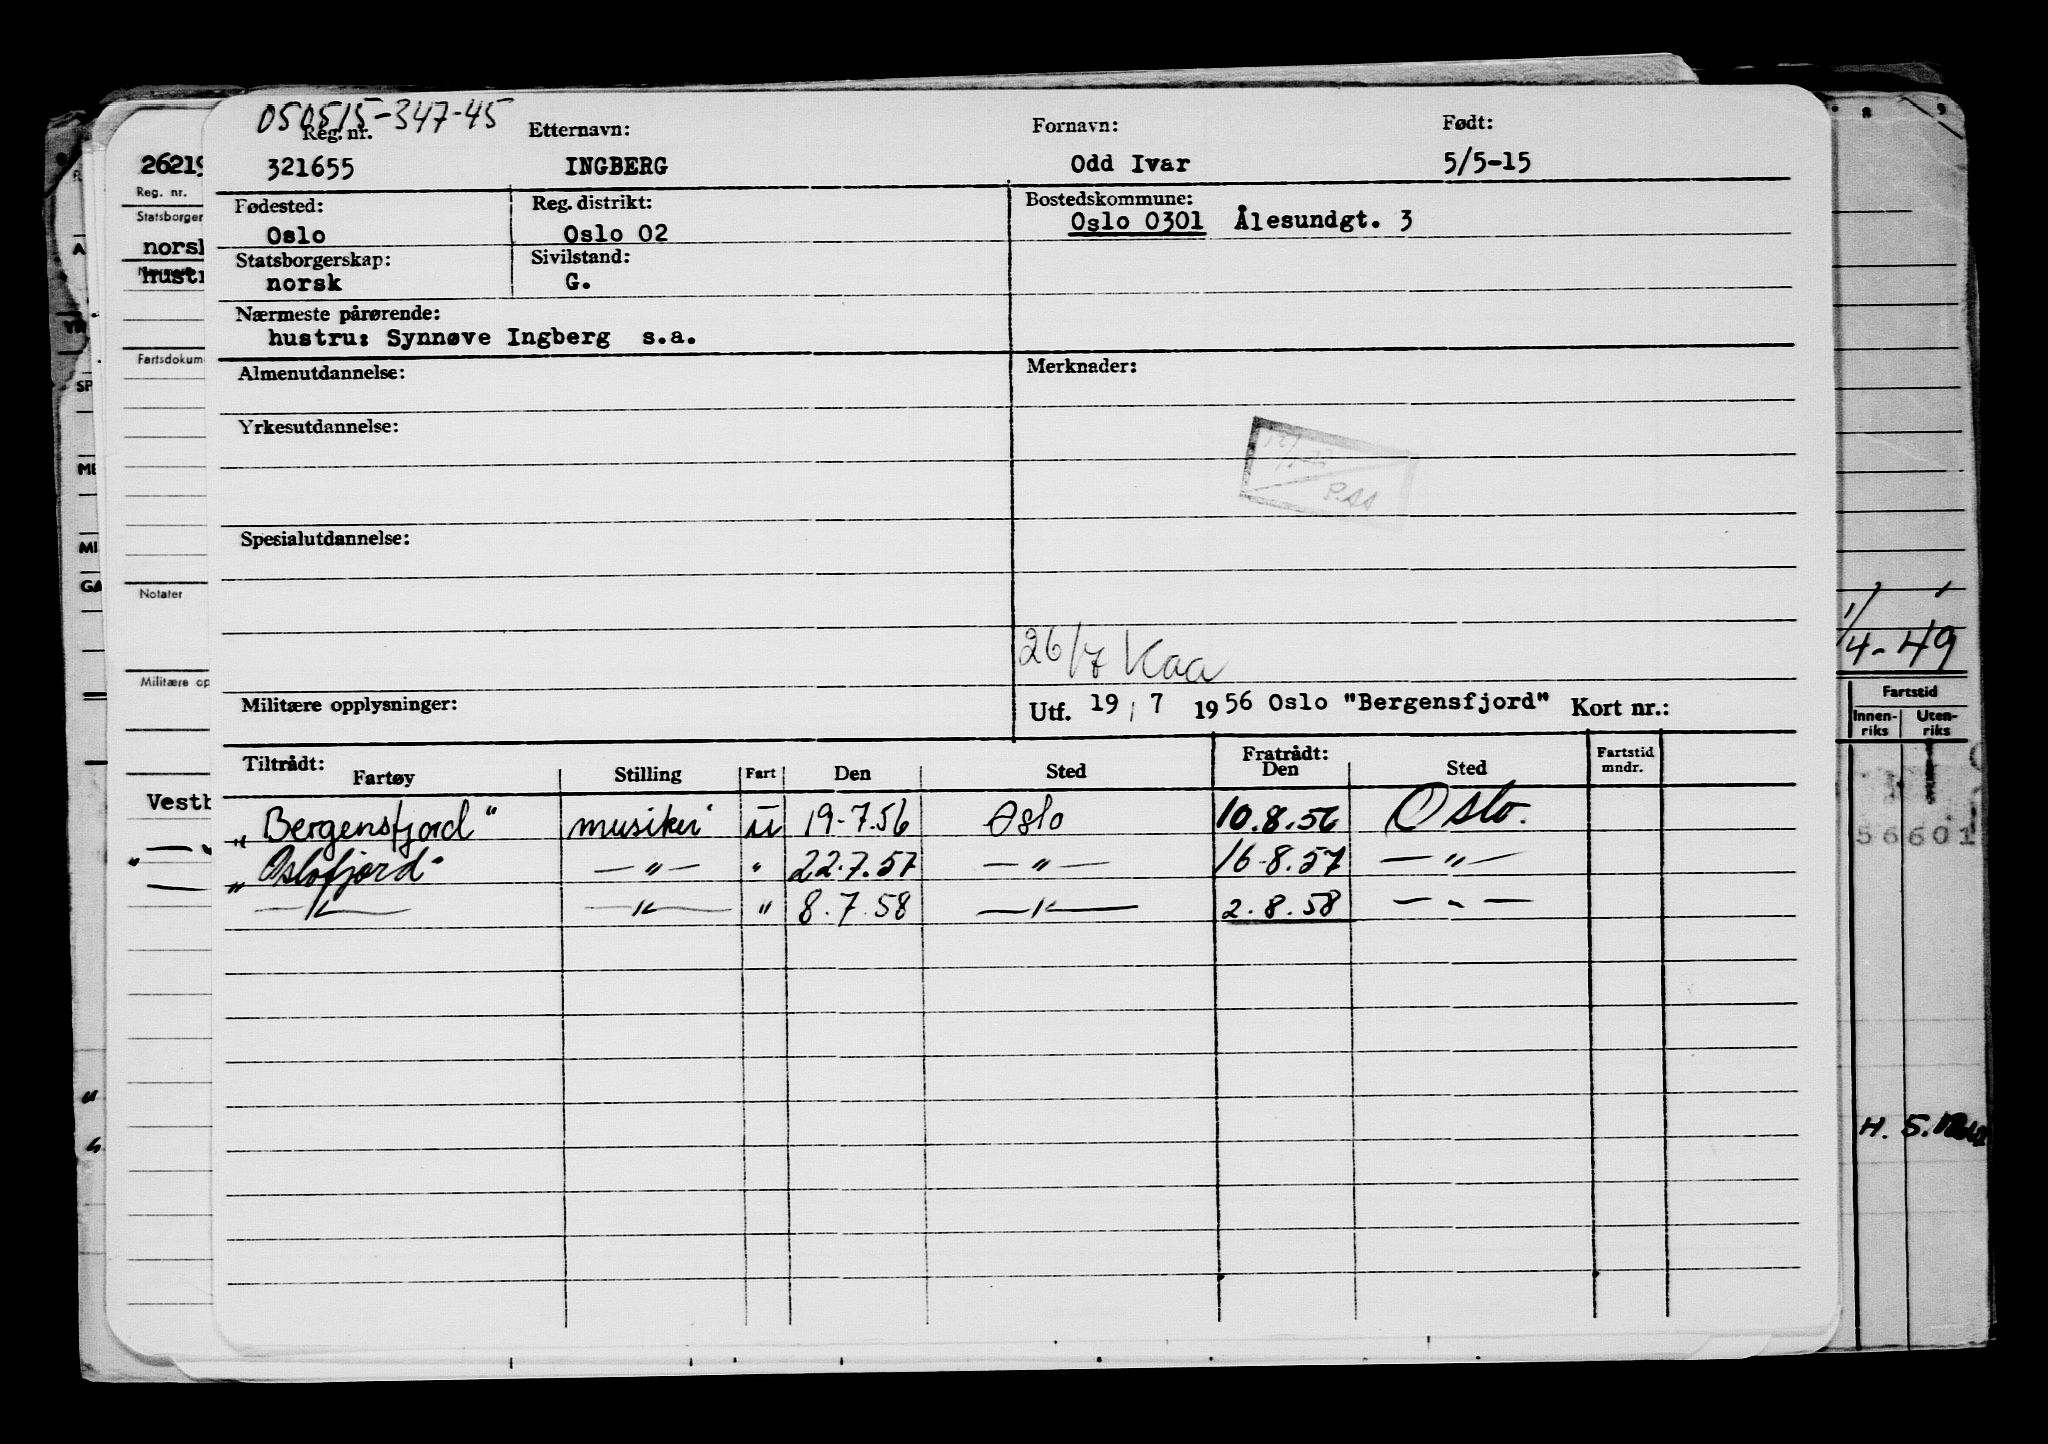 050515-347-45
Reg. nr. Etternavn: Fornavn: Født:
321655 INGBERG Odd Ivar 5/5-15
Fødested: Reg. distrikt: Bostedskommune:
Oslo Oslo 02 Oslo 0301 Ålesundgt. 3
Statsborgerskap: Sivilstand:
norsk G.
Nærmeste pårørende:
hustru: Synnøve Ingberg s.a.
Almenutdannelse: Merknader:
Yrkesutdannelse:
P.ss
Spesialutdannelse:
26/7 Kaa
Militære opplysninger: Utf. 19 / 7 1956 Oslo "Bergensfjord" Kort nr.:
Tiltrådt: Fratrådt:
Fartøy Stilling Fart Den Sted Den Sted Fartstid mndr.
"Bergensfjord" musiker u 19-7.56 Oslo 10.8.56 Oslo.
"Oslofjord" — " — " 22.7.57 — " — 16-8.57 — " —
— " — — " — " 8.7.58 — " — 2.8.58 — " —
26219
Reg. nr.
Statsborger
norsk
hustr
Fartsdokum
Notater
Militære op
Vestb
SP
ME
MI
GA
8 9
1/4-49
Fartstid
Innen-riks Uten-riks
56601
H. 5.